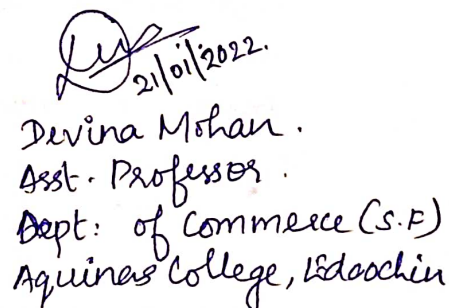 21/01/2022.
Devina Mohan.
Asst. Professor.
Dept: of Commerce (S.F)
Aquinas College, Edoochin